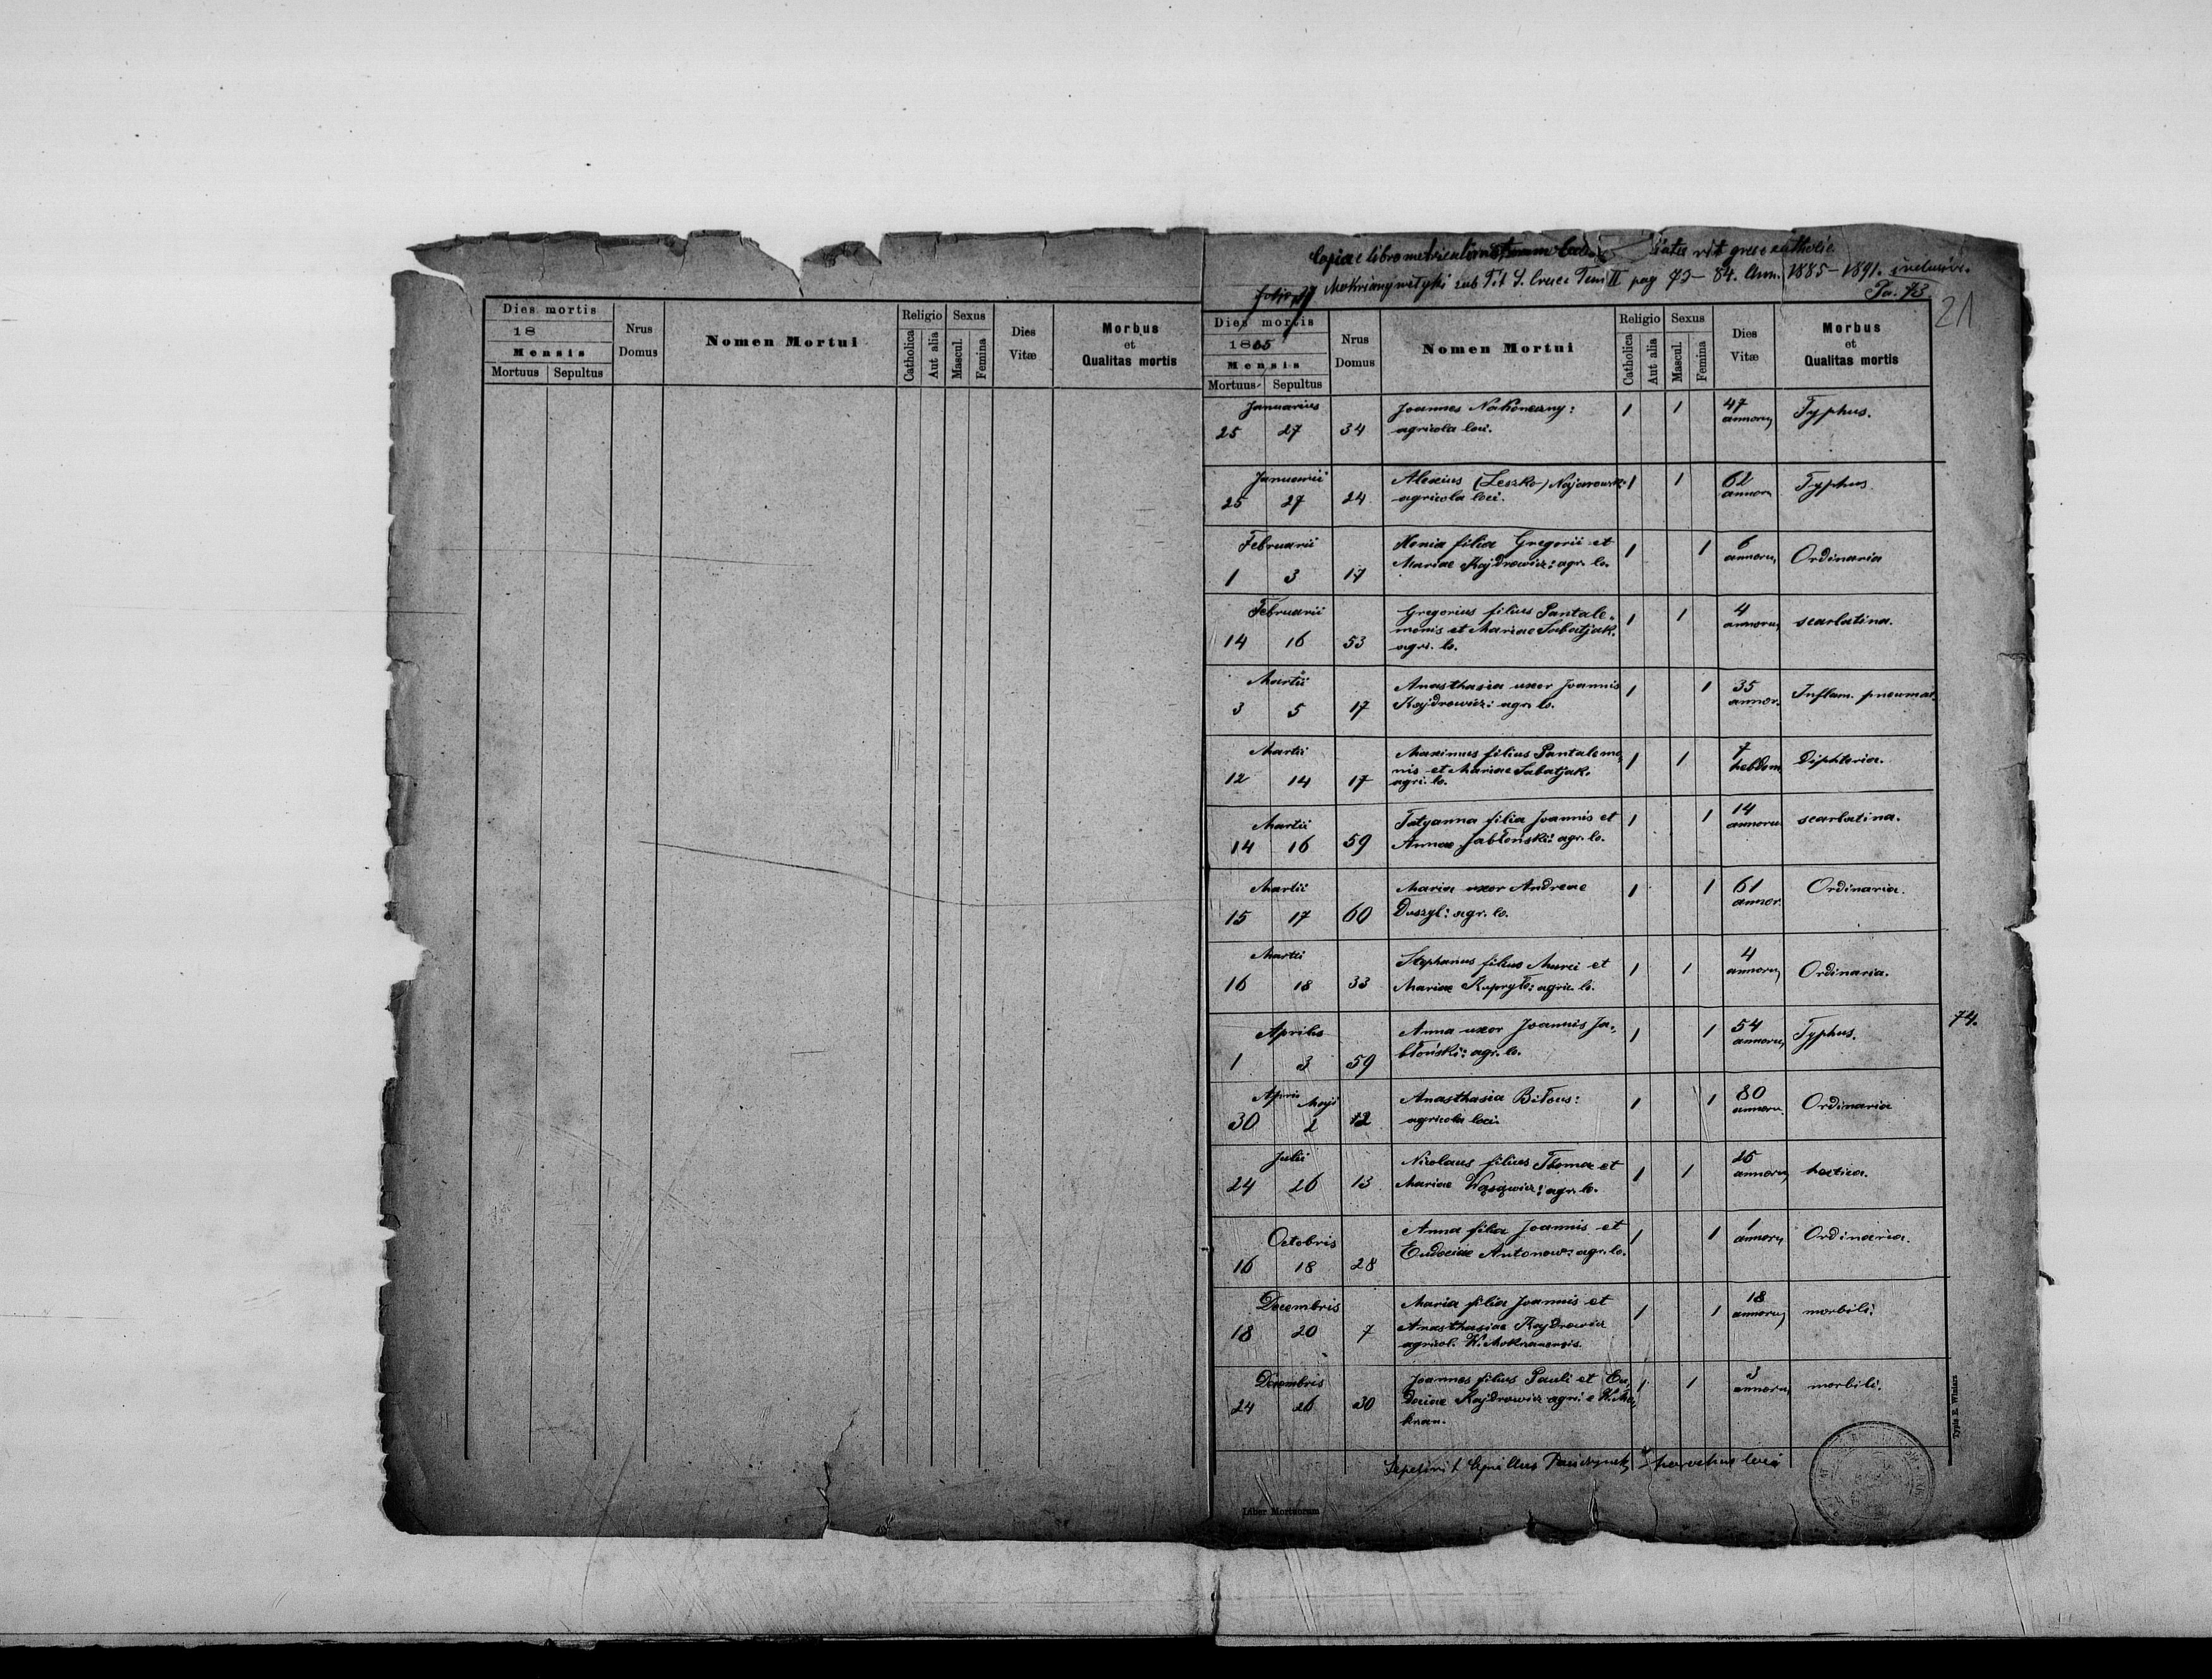 Dies mortis
18
Mensis
Mortuus Sepultus
Nrus
Domus
Nomen Mortui
Religio
Catholica
Aut alia
Sexus
Mascul.
Femina
Dies
Vitæ
Morbus
et
Qualitas mortis
Copia e libro metricali rit graeco catholic
sub Tit S. Cruce Tom II pag 72 – 84. Ann. 1885 – 1891. inclusive.
Pa. 73.
21
Dies mortis
1885
Mensis
Mortuus Sepultus
Nrus
Domus
Nomen Mortui
Religio
Catholica
Aut alia
Sexus
Mascul.
Femina
Dies
Vitæ
Morbus
et
Qualitas mortis
Januarius
25 27 34 Joannes Nakoneczny: 1 1 47 Typhus.
agricola loci. annoru
Januarii
25 27 24 Alexius (Leszko) 1 1 62 Typhus
agricola loci. annor
Februarii
1 3 17 filia Gregorii et 1 1 6 Ordinaria
Mariae Kajdrowicz: agr. lo. annoru
Februarii
14 16 53 Gregorius filius Pantale- 1 1 4 scarlatina.
monis et Mariae Sabatjak. annoru
agri. lo.
Martii
3 5 17 Anasthasia uxor Joannis 1 1 35 Inflam. pneumat.
Kajdrowicz: agr. lo. annor.
Martii
12 14 17 Maximus filius Pantalemo 1 1 7 Diphteria.
nis et Mariae Sabatjak. hebdom
agri. lo.
Martii
14 16 59 Tatyanna filia Joannis et 1 1 14 scarlatina.
Annae Jabłoński: agr. lo. annoru
Martii
15 17 60 Maria uxor Andreae 1 1 61 Ordinaria.
Duszyl: agr. lo. annor.
Martii
16 18 33 Stephanus filius et 1 1 4 Ordinaria.
Mariae Kupryło: agric. lo. annoru
Aprilis
1 3 59 Anna uxor Joannis Ja- 1 1 54 Typhus.
błoński: agr. lo. annoru
74.
Aprilis Maji
30 2 12 Anasthasia Biłous: 1 1 80 Ordinaria
agricola loci. annoru.
Julii
24 26 13 Nicolaus filius Thomae et 1 1 annoru hectica.
Mariae Wąsowicz: agr. lo.
Octobris
16 18 28 Anna filia Joannis et 1 1 1 Ordinaria.
Eudociae Antonow: agr. lo. annoru
Decembris
18 20 7 Maria filia Joannis et 1 1 18 morbili.
Anasthasiae Kajdrowicz annoru
agricol. W. Mokranensis.
Decembris
24 26 30 Joannes filius Pauli et Eu- 1 1 3 morbili.
dociae Kajdrowicz agri. e W. Mo- annoru
kran.
Sepelivit parochus loci
Liber Mortuorum
Typis E. Winiarz